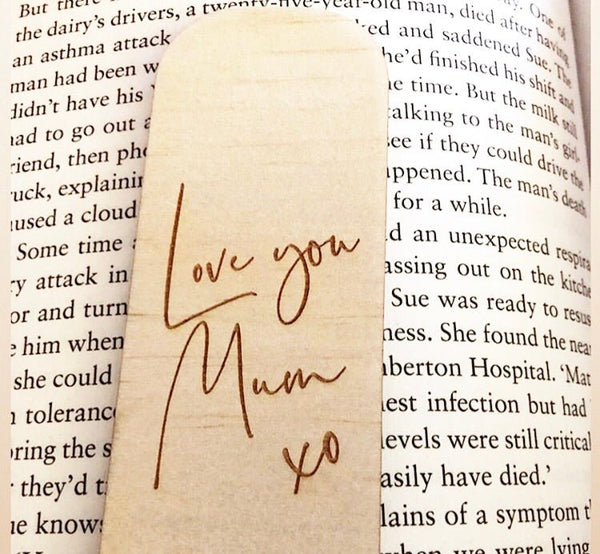 But there
the dairy's drivers, a twenty-five-year-old man, died after having
an asthma attack
ked and saddened Sue. The
man had been w
he'd finished his shift and
didn't have his
e time. But the milk still
had to go out a
alking to the man's girl-
riend, then pho
see if they could drive the
ruck, explainin
appened. The man's death
aused a cloud
for a while.
Some time a
d an unexpected respira
ry attack in
assing out on the kitche
or and turn
Sue was ready to resus
e him when
ness. She found the nea
she could
berton Hospital. 'Mat
n toleranc
est infection but had
ring the s
levels were still critical
they'd t
asily have died.'
ne knows
lains of a symptom t
when we were lying
Love you
Mum
xo